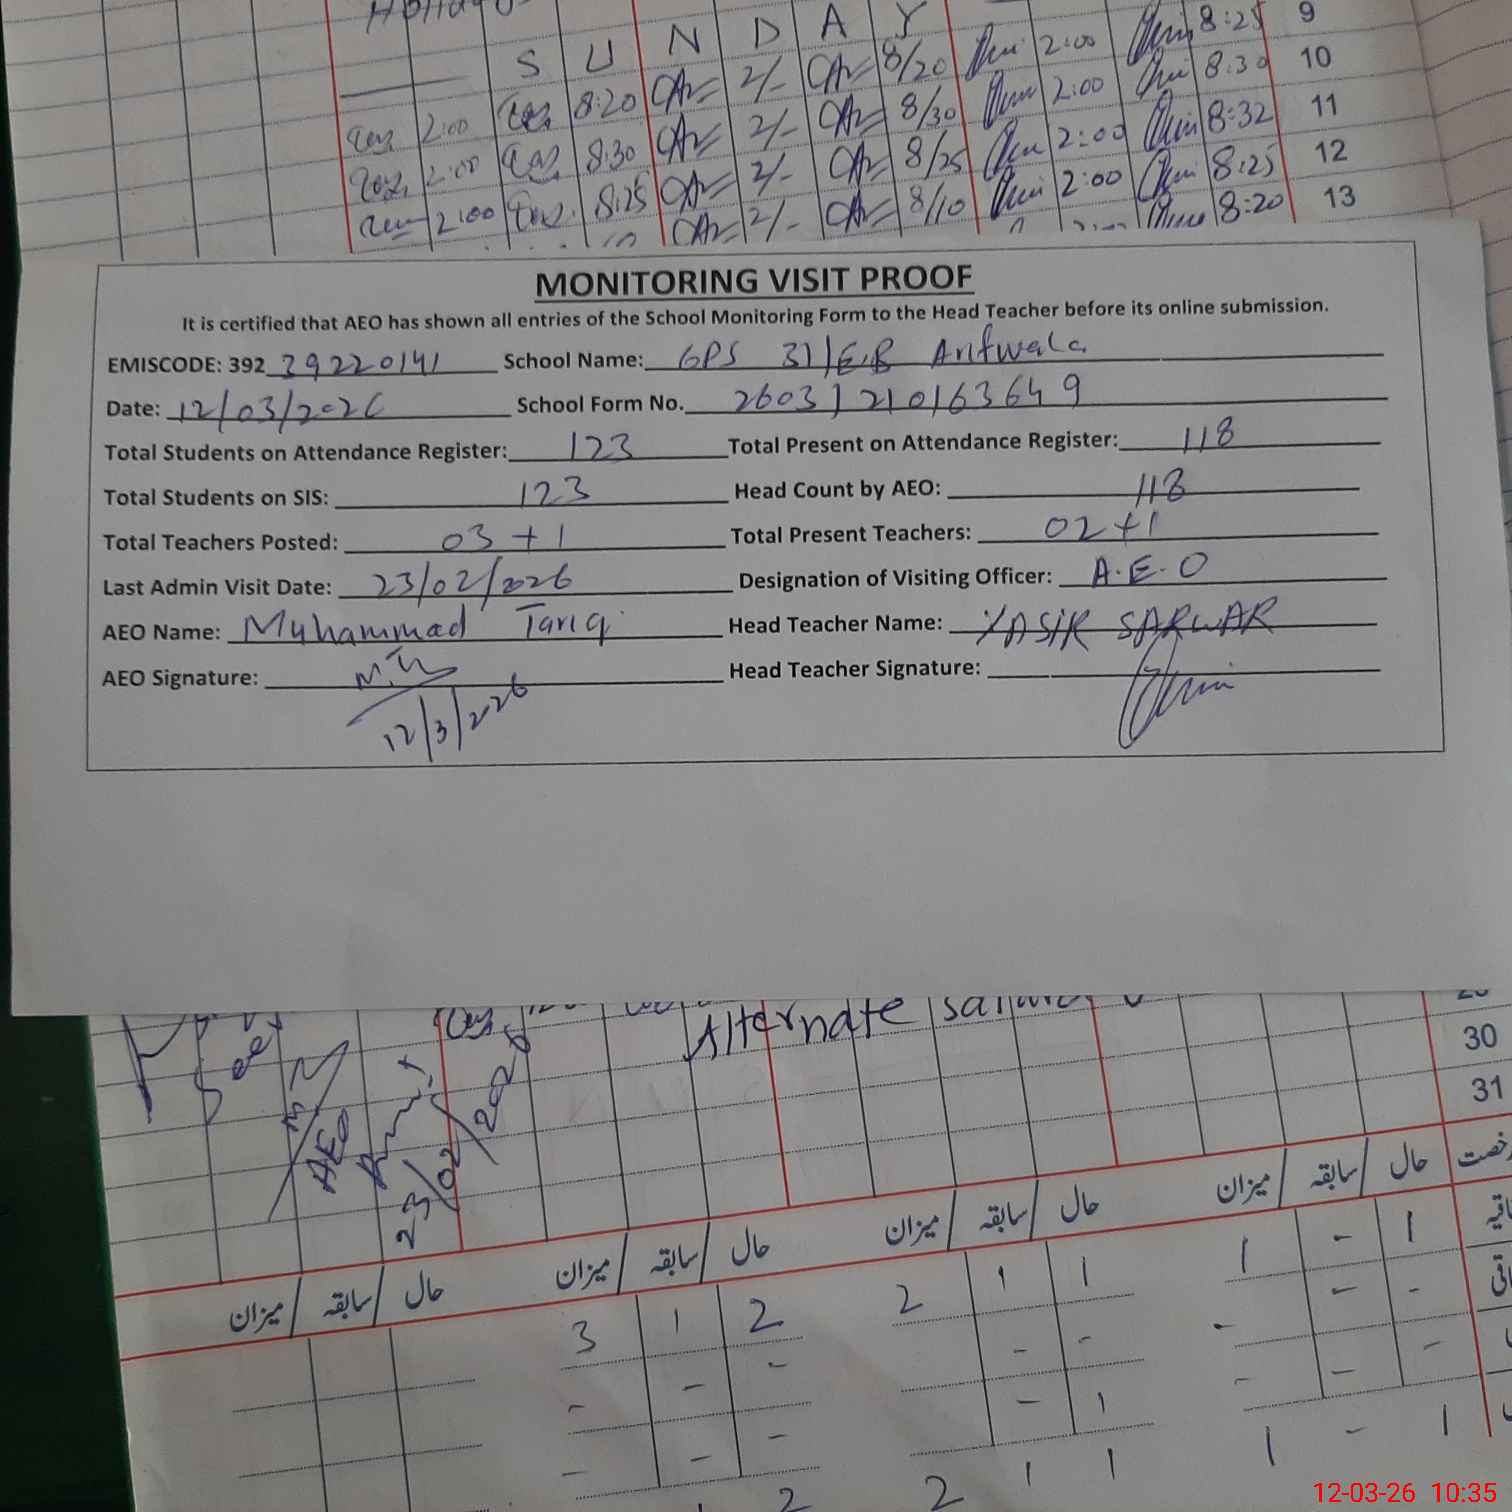 S U N D A Y 2:00 8:25 9
2:00 8:20 2/- 8/20 2:00 8:30 10
2:00 8:30 2/- 8/30 2:00 8:32 11
2:00 8:25 2/- 8/25 2:00 8:25 12
2/- 8/10 8:20 13
MONITORING VISIT PROOF
It is certified that AEO has shown all entries of the School Monitoring Form to the Head Teacher before its online submission.
EMISCODE: 392 39220141 School Name: GPS 31/E.B Arifwala
Date: 12/03/2026 School Form No. 26031210163649
Total Students on Attendance Register: 123 Total Present on Attendance Register: 118
Total Students on SIS: 123 Head Count by AEO: 118
Total Teachers Posted: 03+1 Total Present Teachers: 02+1
Last Admin Visit Date: 23/02/2026 Designation of Visiting Officer: A.E.O
AEO Name: Muhammad Tariq Head Teacher Name: YASIR SARWAR
AEO Signature: M.T Head Teacher Signature:
12/3/2026
Alternate
30
31
AEO
23/02/202
حال / سابقہ / میزان حال / سابقہ / میزان حال / سابقہ / میزان حال / سابقہ / میزان
3 1 2 2 1 1 1 - 1
- - - - - - - -
- - - - 1 - - -
2 2 1 1 1 - 1
12-03-26 10:35